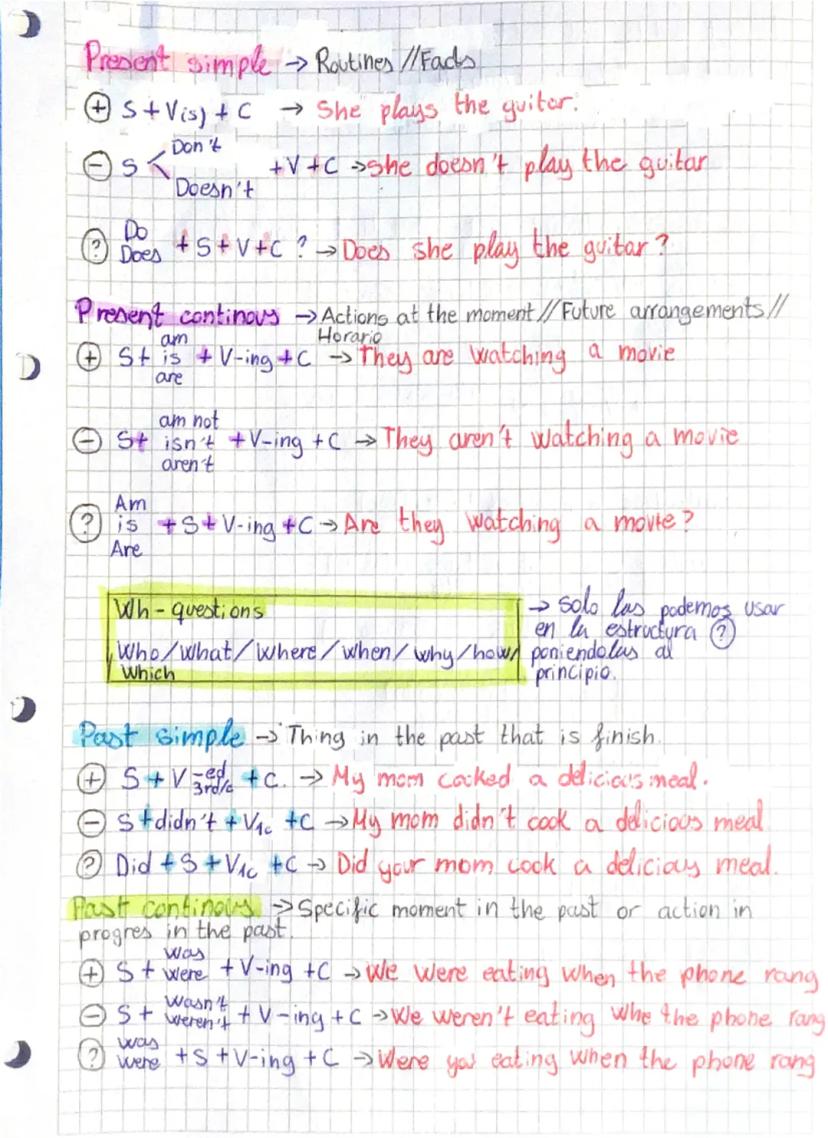 Present simple → Routines // Facts
+ S + V(s) + C → She plays the guitar.
Don't
- S < + V + C → she doesn't play the guitar
Doesn't
Do
? Does + S + V + C ? → Does she play the guitar?
Present continous → Actions at the moment // Future arrangements //
Horario
am
+ S + is + V-ing + C → They are watching a movie
are
am not
- S + isn't + V-ing + C → They aren't watching a movie
aren't
Am
? is + S + V-ing + C → Are they watching a movie?
Are
Wh - questions
Who / What / Where / when / why / how /
Which
→ solo las podemos usar
en la estructura ?
poniendolas al
principio.
Past simple → Thing in the past that is finish.
+ S + V -ed 3rd/c + C. → My mom cooked a delicious meal.
- S + didn't + V1c + C → My mom didn't cook a delicious meal
? Did + S + V1c + C → Did your mom cook a delicious meal.
Past continous → Specific moment in the past or action in
progres in the past.
was
+ S + were + V-ing + C → We were eating when the phone rang
wasn't
- S + weren't + V-ing + C → We weren't eating whe the phone rang
was
? were + S + V-ing + C → Were you eating when the phone rang